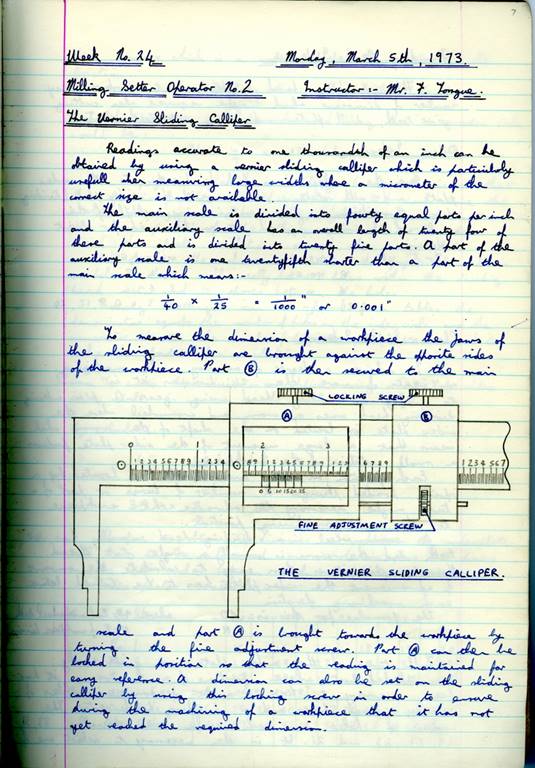 7
Week No. 24 Monday, March 5th, 1973.
Milling Setter Operator No. 2 Instructor :- Mr. F. Tongue.
The Vernier Sliding Calliper
Readings accurate to one thousandth of an inch can be
obtained by using a vernier sliding calliper which is particularly
usefull when measuring large widths where a micrometer of the
correct size is not available.
The main scale is divided into fourty equal parts per inch
and the auxiliary scale has an overall length of twenty four of
these parts and is divided into twenty five parts. A part of the
auxiliary scale is one twentyfifth shorter than a part of the
main scale which means:-
1/40 × 1/25 = 1/1000" or 0.001"
To measure the dimension of a workpiece the jaws of
the sliding calliper are brought against the opposite sides
of the workpiece. Part Ⓑ is then secured to the main
LOCKING SCREW
Ⓐ Ⓑ
0 1 2 3
1 2 3 4 5 6 7 8 9 1 2 3 4 8 9 1 2 3 4 5 6 7 8 9 1 2 3 4 5 6 7 8 9 1 2 3 4 5 6 7
0 5 10 15 20 25
FINE ADJUSTMENT SCREW
THE VERNIER SLIDING CALLIPER.
scale and part Ⓐ is brought towards the workpiece by
turning the fine adjustment screw. Part Ⓐ can then be
locked in position so that the reading is maintained for
easy reference. A dimension can also be set on the sliding
calliper by using this locking screw in order to ensure
during the machining of a workpiece that it has not
yet reached the required dimension.